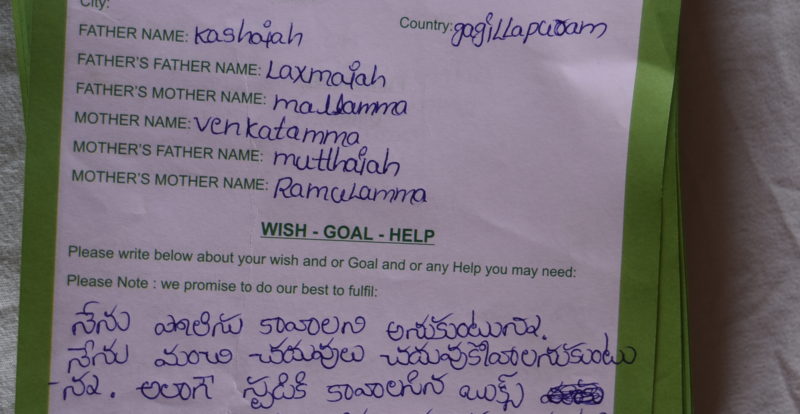 City:
Country: gagillapuram
FATHER NAME: Kashaiah
FATHER'S FATHER NAME: Laxmaiah
FATHER'S MOTHER NAME: mallamma
MOTHER NAME: venkatamma
MOTHER'S FATHER NAME: mutthaiah
MOTHER'S MOTHER NAME: Ramulamma
WISH - GOAL - HELP
Please write below about your wish and or Goal and or any Help you may need:
Please Note : we promise to do our best to fulfil:
నేను పోలిసు కావాలని అనుకుంటున్నా.
నేను మంచి చదువులు చదువుకోవాలనుకుంటు
-న్నా. అలాగే స్టడికి కావాలసిన బుక్స్